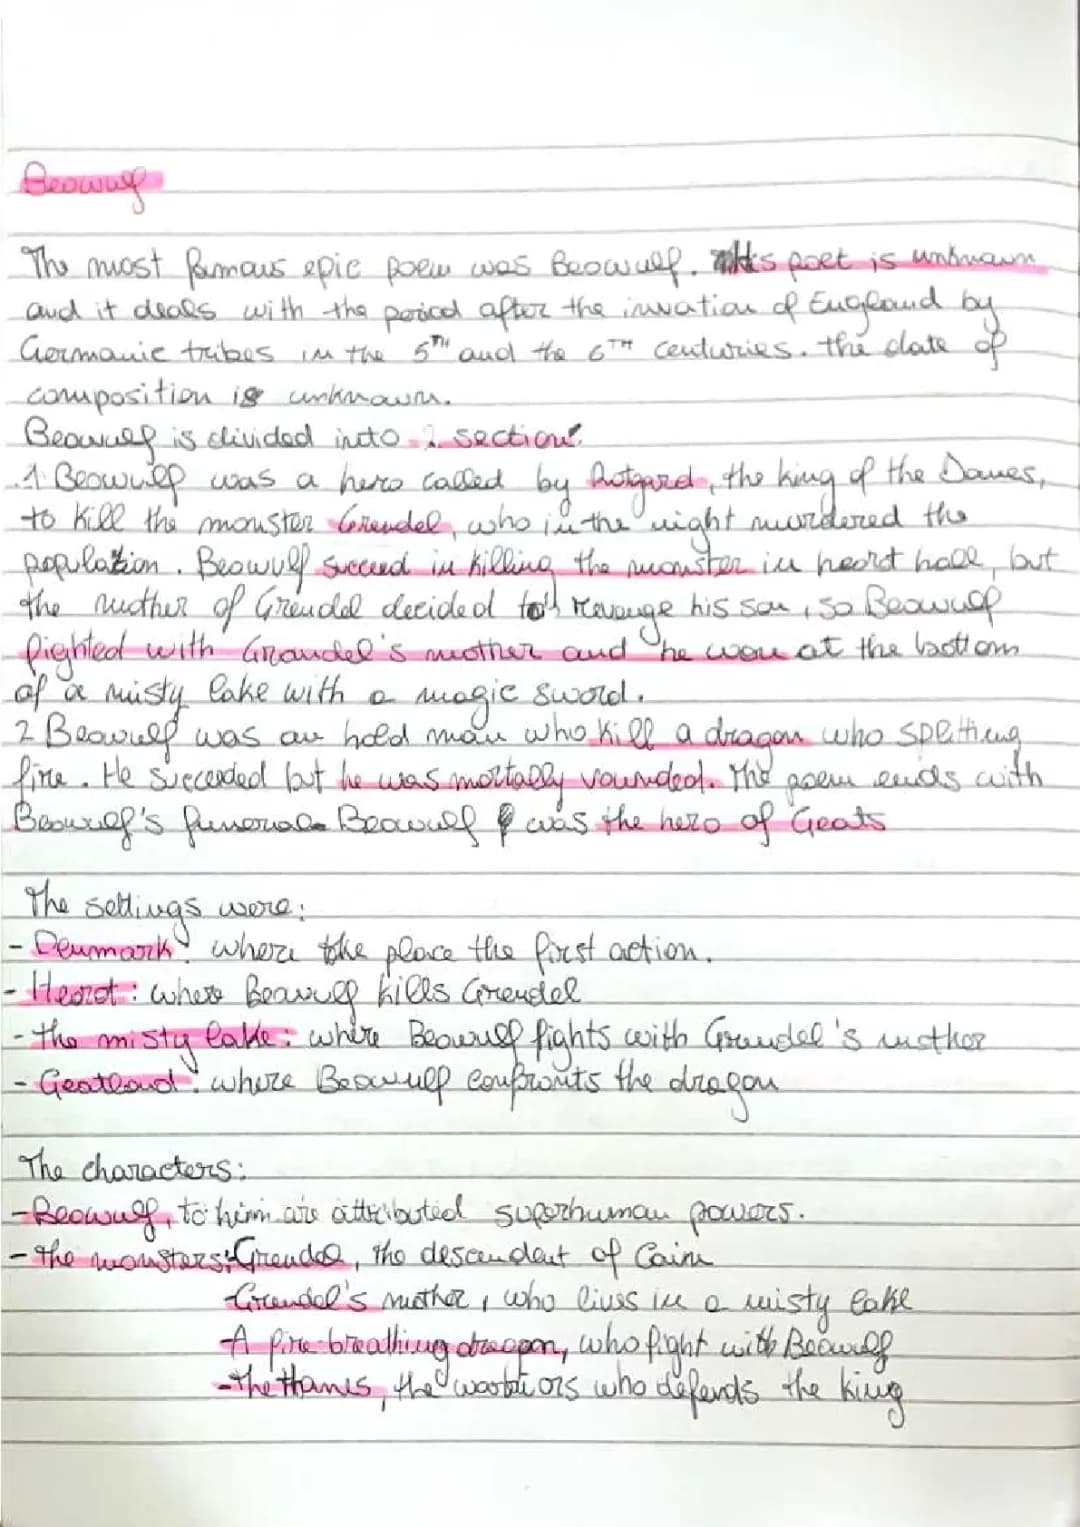 Beowulf
The most famous epic poem was Beowulf. It's poet is unknown
and it deals with the period after the invation of England by
Germanic tribes in the 5TH and the 6TH centuries. the date of
composition is unknown.
Beowulf is divided into 2 section:
1 Beowulf was a hero called by Rotgard, the king of the Danes,
to kill the monster Grendel, who in the night murdered the
population. Beowulf succeed in killing the monster in heort hall, but
the mother of Grendel decided to revenge his son, so Beowulf
fighted with Grandel's mother and he won at the bottom
of a misty lake with a magic sword.
2 Beowulf was an hold man who kill a dragon who splitting
fire. He succeeded but he was mortally wounded. The poem ends with
Beowulf's funeral. Beowulf was the hero of Geats
The settings were:
- Denmark: where take place the first action.
- Heorot: where Beowulf kills Grendel
- the misty lake: where Beowulf fights with Grandel's mother
- Geatland: where Beowulf confronts the dragon
The characters:
- Beowulf, to him are attributed superhuman powers.
- the monsters: Grendel, the descendent of Cain
Grendel's mother, who lives in a misty lake
A fire-breathing dragon, who fight with Beowulf
- The thanes, the warriors who defends the king